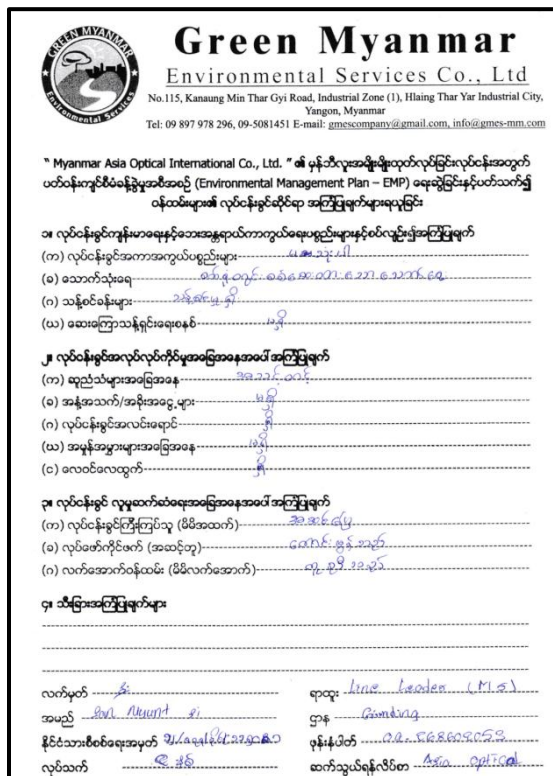 GREEN MYANMAR
Environmental Services
Green Myanmar
Environmental Services Co., Ltd
No.115, Kanaung Min Thar Gyi Road, Industrial Zone (1), Hlaing Thar Yar Industrial City,
Yangon, Myanmar
Tel: 09 897 978 296, 09-5081451 E-mail: gmescompany@gmail.com, info@gmes-mm.com
" Myanmar Asia Optical International Co., Ltd. " ၏ မှန်ဘီလူးအမျိုးမျိုးထုတ်လုပ်ခြင်းလုပ်ငန်းအတွက်
ပတ်ဝန်းကျင်စီမံခန့်ခွဲမှုအစီအစဉ် (Environmental Management Plan – EMP) ရေးဆွဲခြင်းနှင့်ပတ်သက်၍
ဝန်ထမ်းများ၏ လုပ်ငန်းခွင်ဆိုင်ရာ အကြံပြုချက်များရယူခြင်း
၁။ လုပ်ငန်းခွင်ကျန်းမာရေးနှင့်ဘေးအန္တရာယ်ကာကွယ်ရေးပစ္စည်းများနှင့်စပ်လျဉ်း၍အကြံပြုချက်
(က) လုပ်ငန်းခွင်အကာအကွယ်ပစ္စည်းများ
(ခ) သောက်သုံးရေ
(ဂ) သန့်စင်ခန်းများ
(ဃ) ဆေးကြောသန့်ရှင်းရေးစနစ် မရှိ
၂။ လုပ်ငန်းခွင်အလုပ်လုပ်ကိုင်မှုအခြေအနေအပေါ် အကြံပြုချက်
(က) ဆူညံသံများအခြေအနေ အသင့်တင့်
(ခ) အနံ့အသက်/အခိုးအငွေ့များ မရှိ
(ဂ) လုပ်ငန်းခွင်အလင်းရောင် ရှိ
(ဃ) အမှုန်အမွှားများအခြေအနေ မရှိ
(င) လေဝင်လေထွက် ရှိ
၃။ လုပ်ငန်းခွင် လူမှုဆက်ဆံရေးအခြေအနေအပေါ် အကြံပြုချက်
(က) လုပ်ငန်းခွင်ကြီးကြပ်သူ (မိမိအထက်) အဆင်ပြေ
(ခ) လုပ်ဖော်ကိုင်ဖက် (အဆင့်တူ)
(ဂ) လက်အောက်ဝန်ထမ်း (မိမိလက်အောက်)
၄။ သီးခြားအကြံပြုချက်များ
လက်မှတ်
ရာထူး Line Leader (M S)
အမည် San Nyunt Ei
ဌာန
နိုင်ငံသားစိစစ်ရေးအမှတ်
ဖုန်းနံပါတ်
လုပ်သက်
ဆက်သွယ်ရန်လိပ်စာ Asia optical